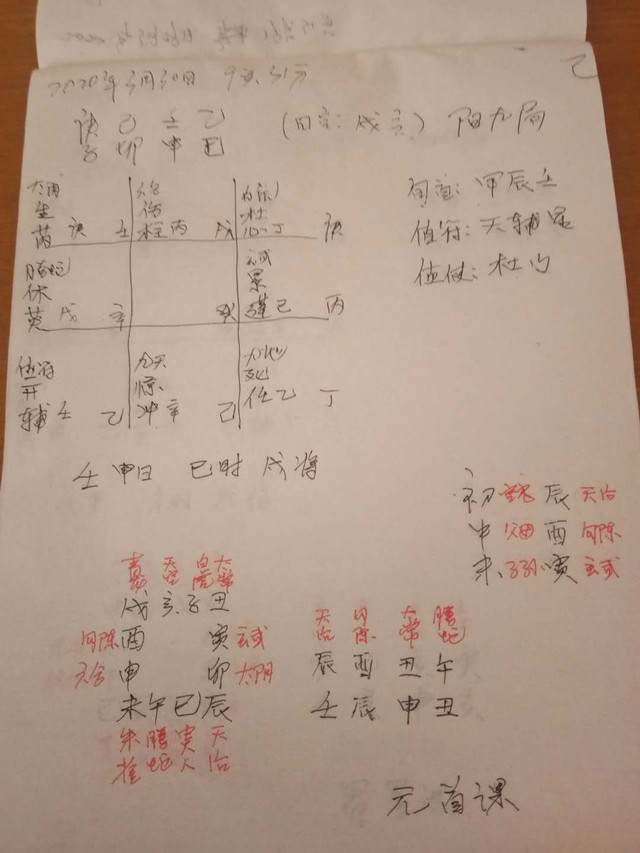 2020年3月30日 9点51分
庚 己 壬 乙 (日空:戌亥) 阳九局
子 卯 申 巳
旬首:甲辰壬
值符:天辅星
值使:杜门
太阴 六合
生 伤 杜
芮 庚 壬 柱 丙 戊 心 丁 庚
腾蛇 玄武
休 景
英 戊 辛 己 丙
值符 九天 九地
开 惊 死
辅 壬 乙 冲 辛 己 任 乙 丁
壬 申日 巳时 戌将
初 辰 天后
中 酉 勾陈
末 寅 玄武
青龙 天空 白虎 太常
戌 亥 子 丑
勾陈 酉 寅 玄武
六合 申 卯 太阴
未 午 巳 辰
朱雀 腾蛇 贵人 天后
天后 勾陈 太常 腾蛇
辰 酉 丑 午
壬 辰 申 丑
元首课